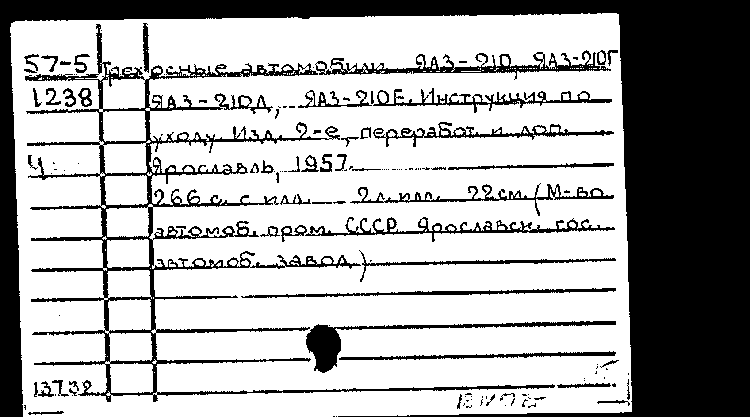 57-5 Трехосные автомобили ЯАЗ-210, ЯАЗ-210Г
1238 ЯАЗ-210Д, ЯАЗ-210Е. Инструкция по
уходу. Изд. 2-е, переработ. и доп.
Ч Ярославль, 1957.
266 с. с илл. 2 л. илл. 22 см. (М-во
автомоб. пром. СССР. Ярославск. гос.
автомоб. завод)
13732